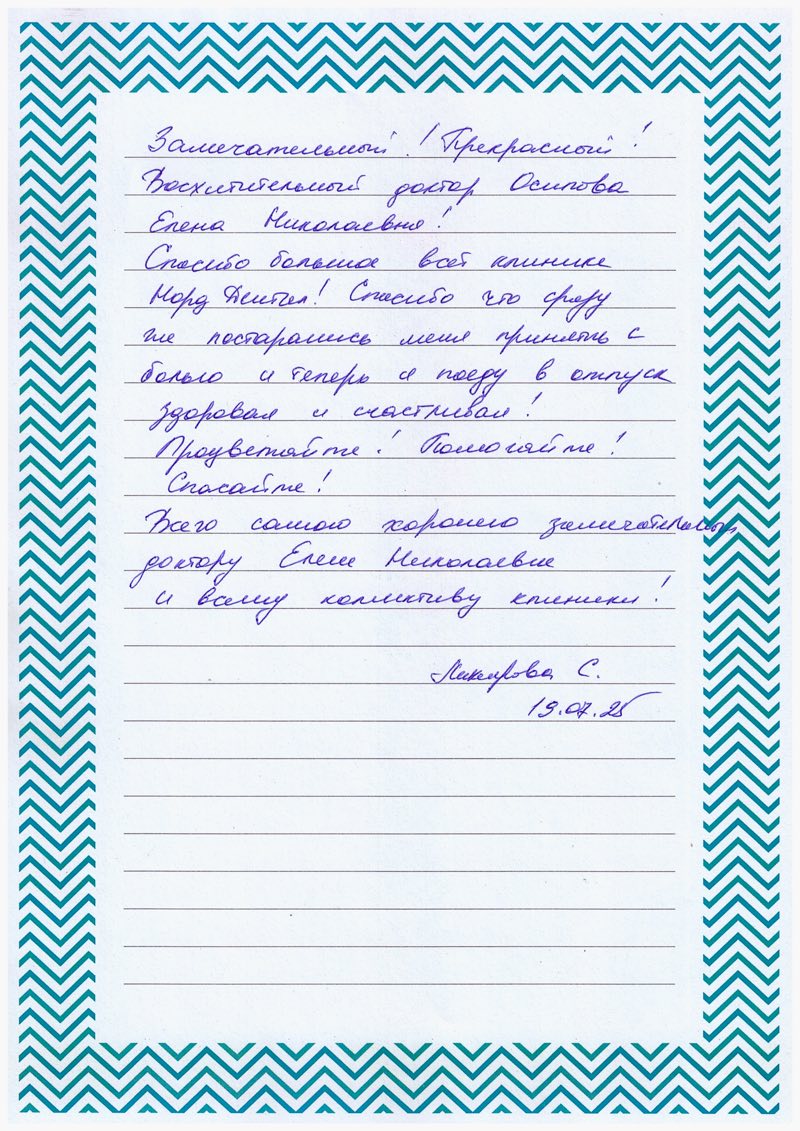 Замечательный! Прекрасный!
Восхитительный доктор Осипова
Елена Николаевна!
Спасибо большое всей клинике
Норд Дентал! Спасибо что сразу
же постарались меня принять с
болью и теперь я поеду в отпуск
здоровая и счастливая!
Процветайте! Помогайте!
Спасайте!
Всего самого хорошего замечательному
доктору Елене Николаевне
и всему коллективу клиники!
С.
19.07.25